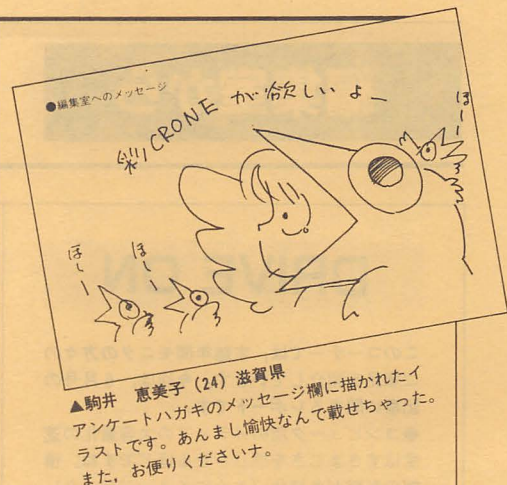 ●編集室へのメッセージ
CRONE が欲しいよー
ほーー
ほーー
ほーー
▲駒井 恵美子 (24) 滋賀県
アンケートハガキのメッセージ欄に描かれたイ
ラストです。あんまし愉快なんで載せちゃった。
また，お便りくださいナ。